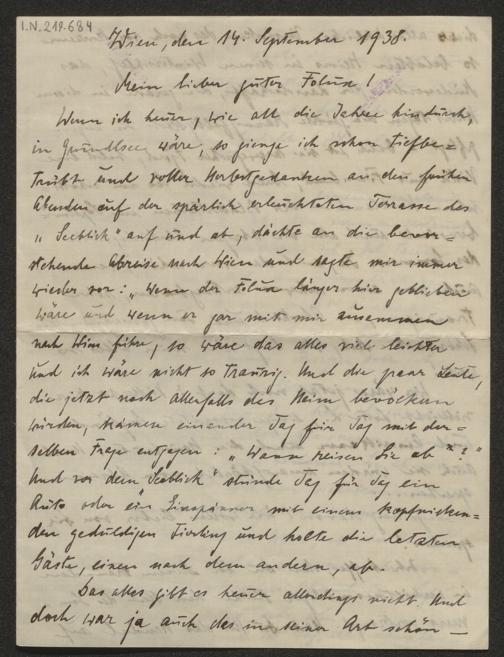 I.N. 219.684
Wien, den 14. September 1938.
Mein lieber guter Foluse!
Wenn ich heuer, wie all die Jahre hindurch,
in Grundlsee wäre, so gienge ich schon tiefbe=
trübt und voller Herbstgedanken an den frühen
Abenden auf der spärlich erleuchteten Terrasse des
„Seeblick" auf und ab, dächte an die bevor=
stehende Abreise nach Wien und sagte mir immer
wieder vor: „Wenn der länger hier geblieben
wäre und wenn er gar mit mir zusammen
nach Wien führe, so wäre das alles viel leichter
und ich wäre nicht so traurig. Und die paar Leute,
die jetzt noch allenfalls das Heim bevölkern
würden, kämen einander Tag für Tag mit der=
selben Frage entgegen: „Wann reisen Sie ab"?"
Und vor dem „Seeblick" stünde Tag für Tag ein
Auto oder ein Einspänner mit einem kopfnicken=
den geduldigen und holte die letzten
Gäste, einen nach dem andern, ab.
Das alles gibt es heuer allerdings nicht. Und
doch war ja auch das in seiner Art schön —